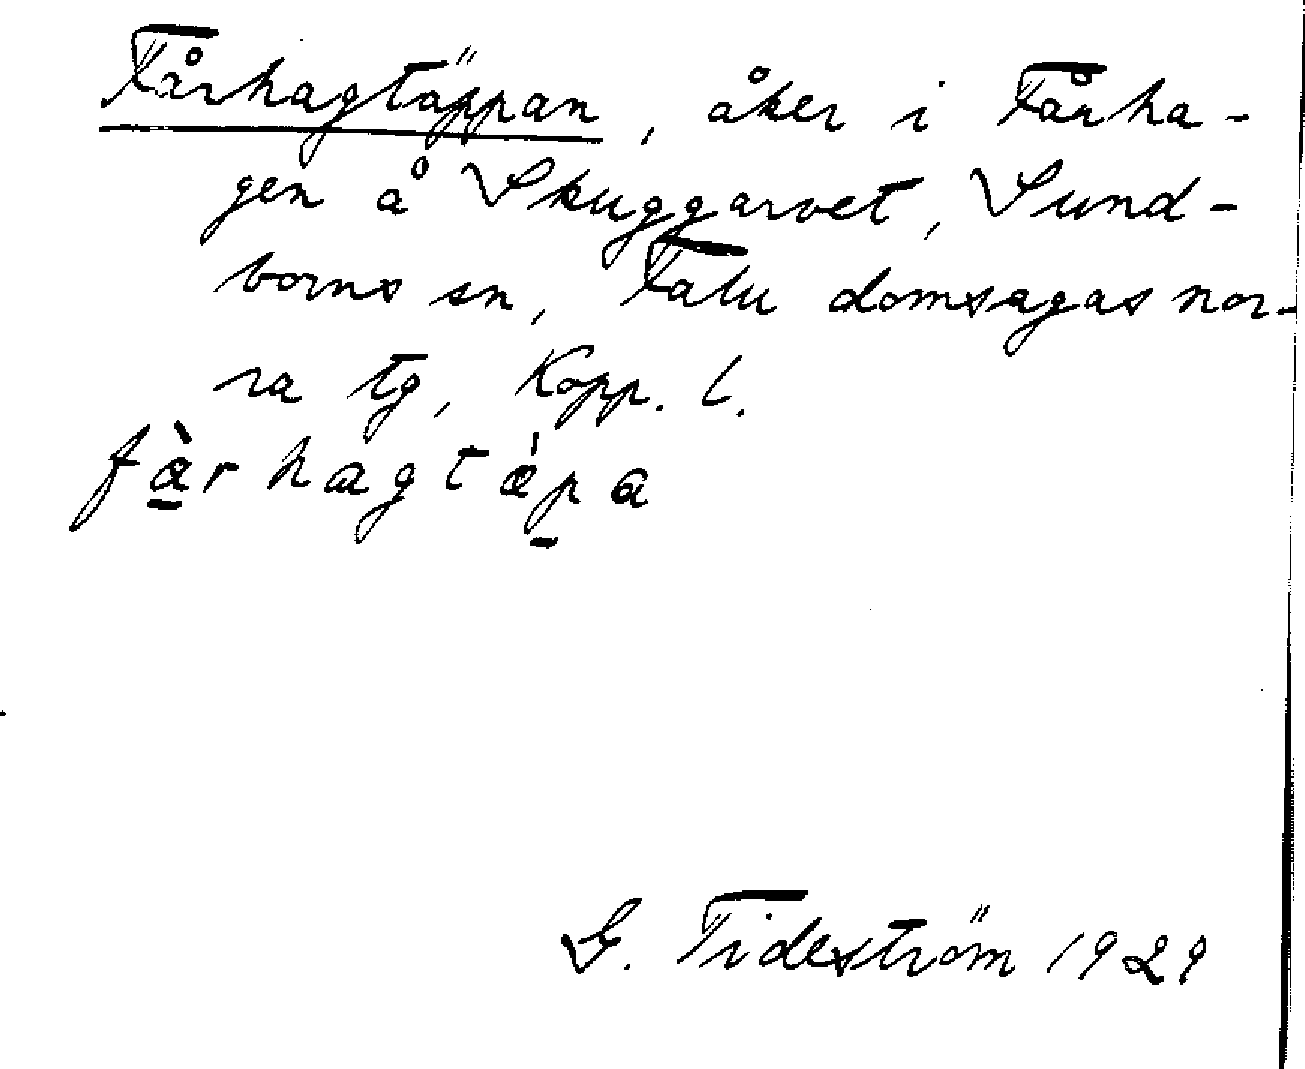 Fårhagtäppan, åker i Fårha-
gen å Skuggarvet, Sund-
borns sn, Falu domsagas nor-
ra tg, Kopp. l.
fàrhagtǽpa
G. Tideström 1929